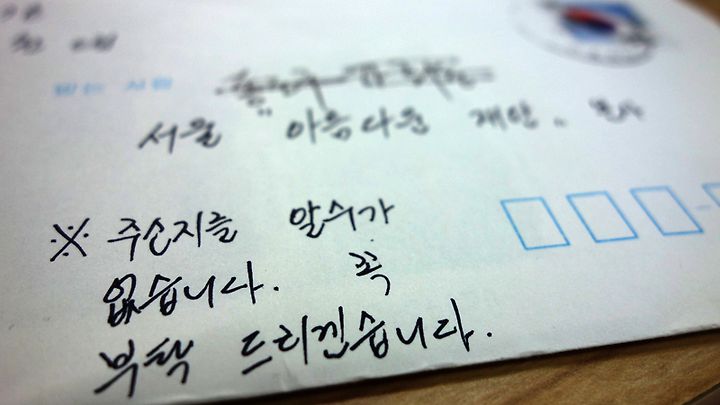 받는 사람
서울 아름다운 재단. 본사
※ 주소지를 알수가
없습니다. 꼭
부탁 드리겠습니다.